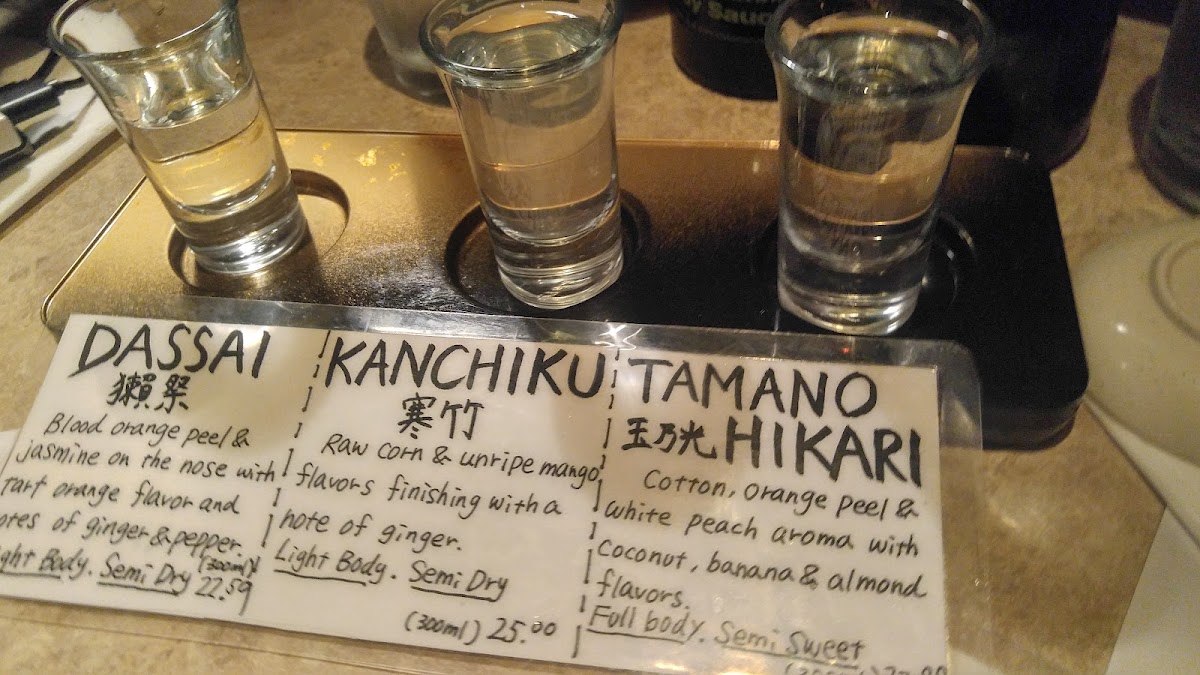 y Sauc
DASSAI
獺祭
Blood orange peel &
jasmine on the nose with
tart orange flavor and
notes of ginger & pepper.
Light Body. Semi Dry
(300ml)
22.50
KANCHIKU
寒竹
Raw corn & unripe mango
flavors finishing with a
note of ginger.
Light Body. Semi Dry
(300ml) 25.00
TAMANO
玉乃光 HIKARI
Cotton, orange peel &
white peach aroma with
coconut, banana & almond
flavors.
Full body. Semi Sweet